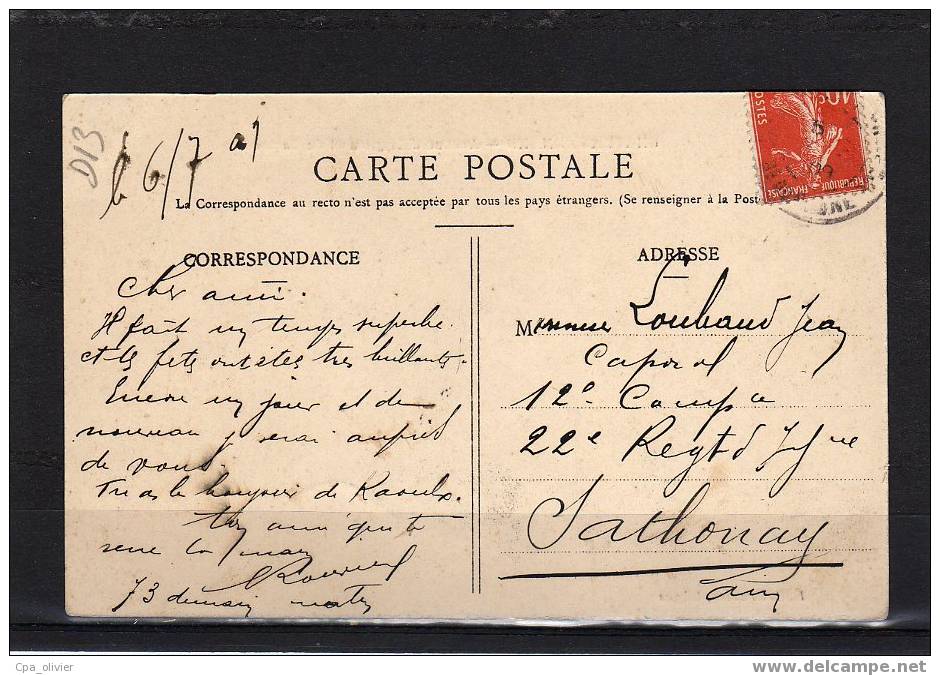 D13
le 6/7 07
CARTE POSTALE
La Correspondance au recto n'est pas acceptée par tous les pays étrangers. (Se renseigner à la Post
10c
POSTES
REPUBLIQUE FRANÇAISE
CORRESPONDANCE
Cher ami.
Il fait un temps superbe
et les fetes ont etés tres brillantes.
Encore un jour et de
nouveau je serai auprès
de vous.
Tu as le bonjour de Raoulx.
Ton ami qui te
serre la main
73 demain matin
ADRESSE
Monsieur Loubaud Jean
Caporal
12e Compie
22e Regt d'Infrie
Sathonay
Ain
Cpa_olivier
www.delcampe.net